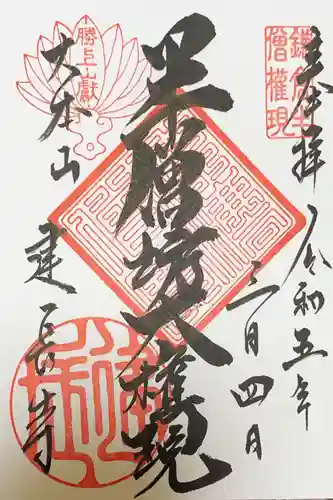 奉拝
令和五年
三月四日
鎌倉半
僧權現
半僧坊大権現
勝上山獻
大本山
建長寺